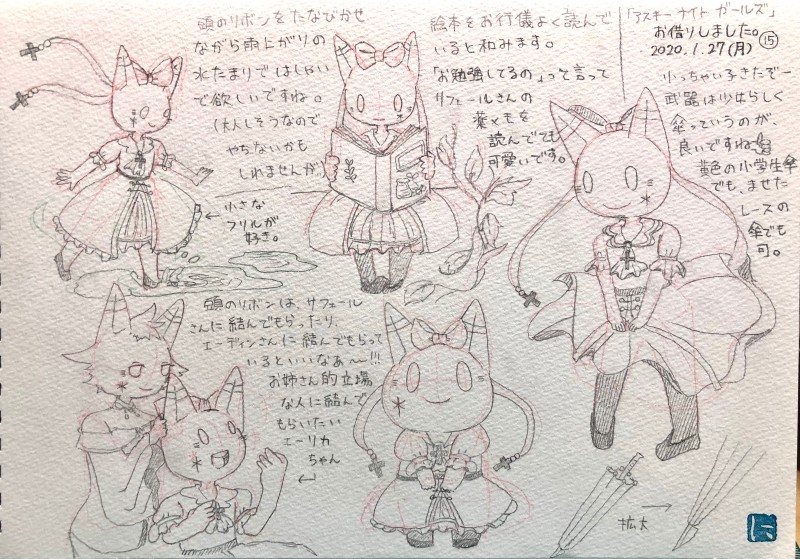 頭のリボンをたなびかせ
ながら雨上がりの
水たまりではしゃい
で欲しいですね。
(大人しそうなので
やらないかも
しれませんが。
小さな
フリルが
好き。
絵本をお行儀よく読んで
いると和みます。
「お勉強してるの」って言って
サフェールさんの
薬メモを
読んでても
可愛いです。
「アスキーナイト ガールズ」
お借りしました。
⑮
2020.1.27(月)
小っちゃい子きたぞー
武器は少女らしく
傘っていうのが、
良いですね
黄色の小学生傘
でも、ませた
レースの
傘でも
可。
頭のリボンは、サフェール
さんに結んでもらったり、
エーディンさんに結んでもらって
いるといいなあ〜!!!
お姉さん的立場
な人に結んで
もらいたい
エーリカ
ちゃん
拡大
に